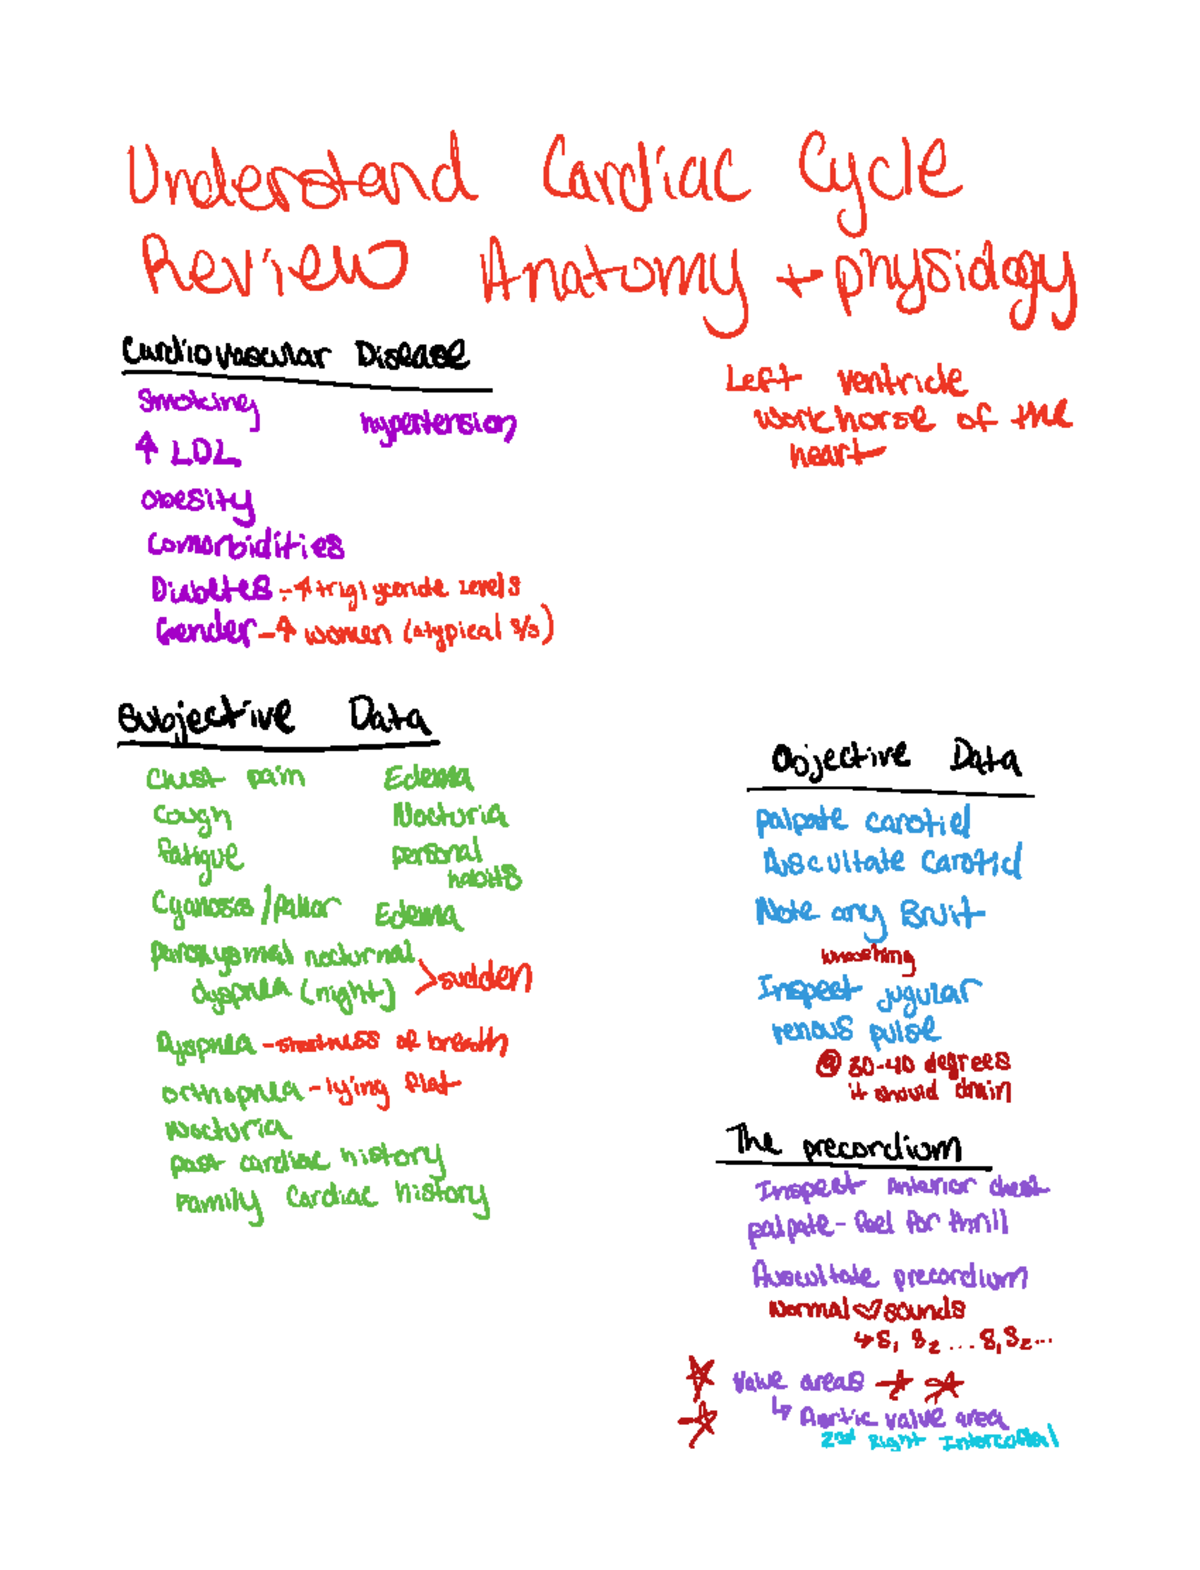 Understand Cardiac Cycle
Review Anatomy + physiology
Cardiovascular Disease
Smoking
hypertension
↑ LDL
obesity
Comorbidities
Diabetes - ↑ triglyceride levels
Gender - ↑ women (atypical s/s)
Left ventricle
workhorse of the
heart
Subjective Data
Chest pain
Cough
Fatigue
Cyanosis/pallor
paroxysmal nocturnal
dyspnea (night)
> sudden
Dyspnea - shortness of breath
orthopnea - lying flat
Nocturia
past cardiac history
Family Cardiac history
Edema
Nocturia
personal
habits
Edema
Objective Data
palpate carotid
Auscultate Carotid
Note any Bruit
whooshing
Inspect jugular
venous pulse
@ 30-40 degrees
it should drain
The precordium
Inspect Anterior chest
palpate - feel for thrill
Auscultate precordium
Normal ♡ sounds
↳ S1 S2 ... S1 S2 ...
☆ Valve areas ☆ ☆
☆ ↳ Aortic valve area
2nd Right Intercostal